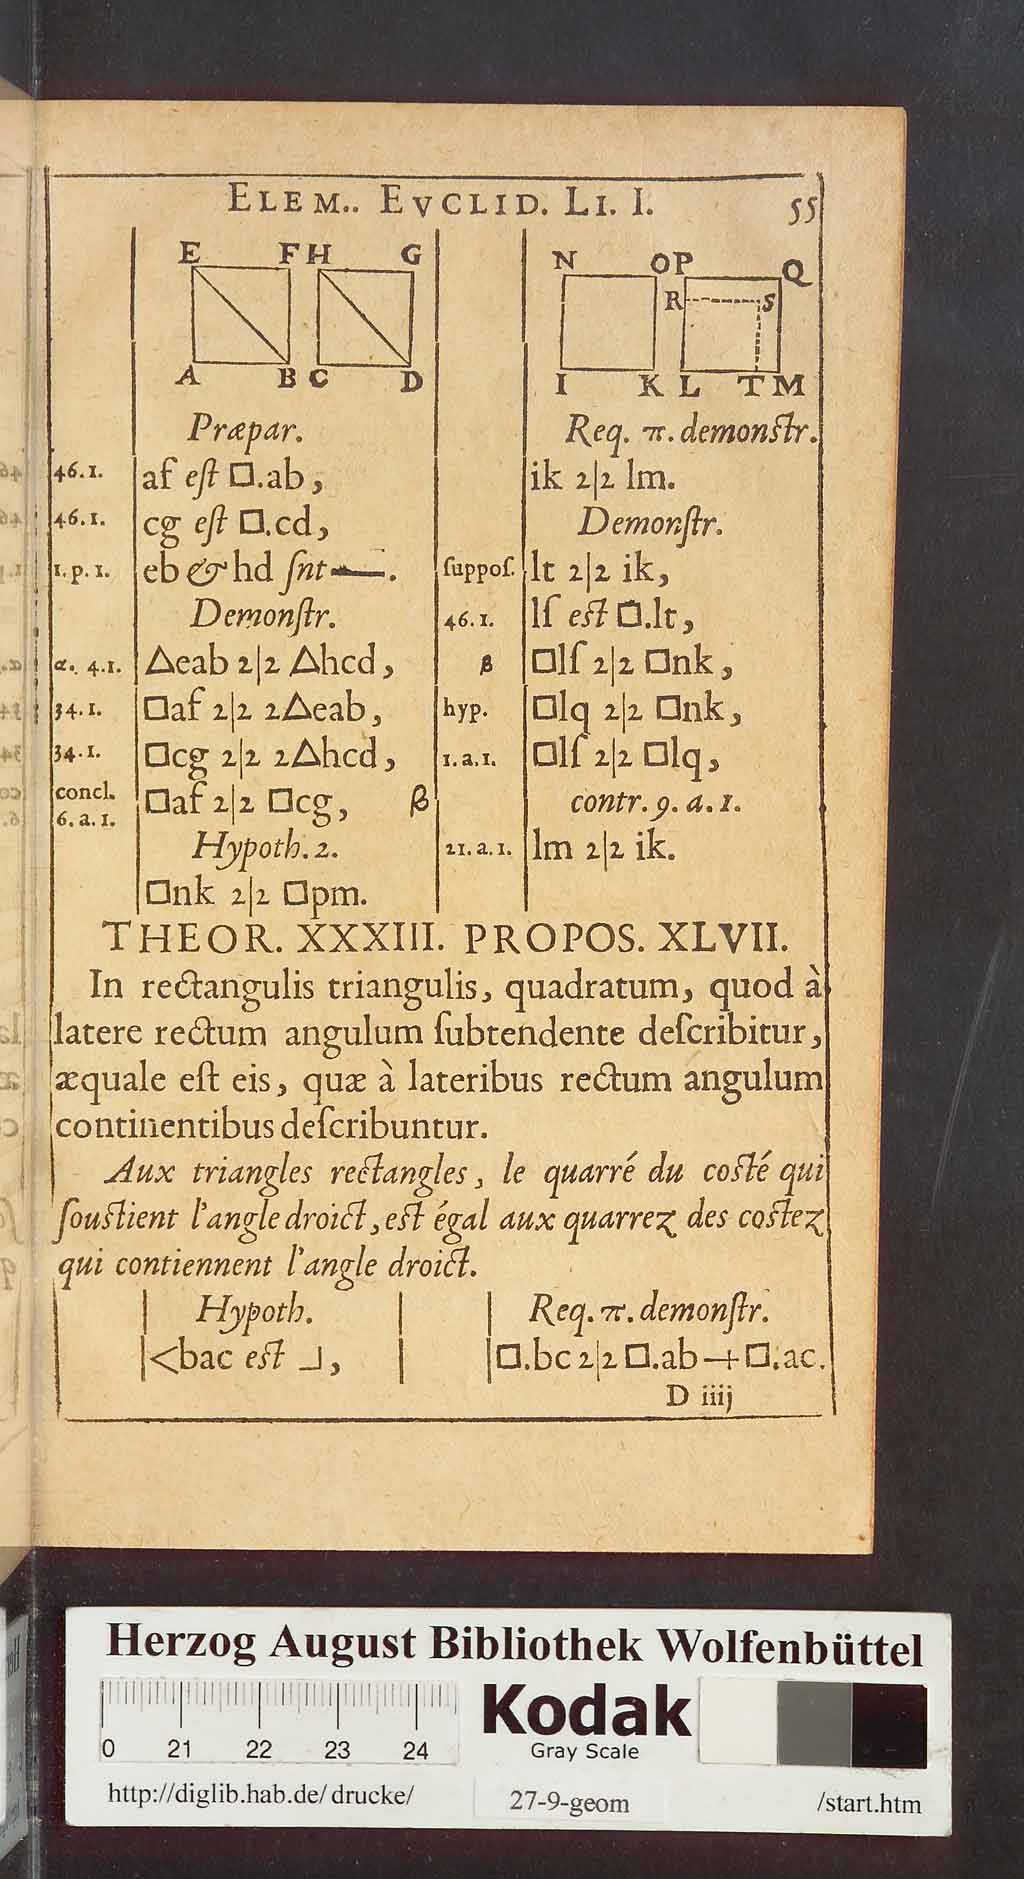 ELEM.. EVCLID. LI. I. 55
E F H G
A B C D
Præpar.
46.1. af eſt □.ab,
46.1. cg eſt □.cd,
1.p.1. eb & hd ſnt —.
Demonſtr.
α. 4.1. △eab 2|2 △hcd,
34.1. □af 2|2 2△eab,
34.1. □cg 2|2 2△hcd,
concl.
6.a.1. □af 2|2 □cg, β
Hypoth. 2.
□nk 2|2 □pm.
N O P Q
R S
I K L T M
Req. π. demonſtr.
ik 2|2 lm.
Demonſtr.
ſuppoſ. lt 2|2 ik,
46.1. lſ eſt □.lt,
β □lſ 2|2 □nk,
hyp. □lq 2|2 □nk,
1.a.1. □lſ 2|2 □lq,
contr. 9. a. 1.
21.a.1. lm 2|2 ik.
THEOR. XXXIII. PROPOS. XLVII.
In rectangulis triangulis, quadratum, quod à
latere rectum angulum ſubtendente deſcribitur,
æquale eſt eis, quæ à lateribus rectum angulum
continentibus deſcribuntur.
Aux triangles rectangles, le quarré du coſté qui
ſouſtient l'angle droict, eſt égal aux quarrez des coſtez
qui contiennent l'angle droict.
Hypoth.
<bac eſt ⅃,
Req. π. demonſtr.
□.bc 2|2 □.ab + □.ac.
D iiij
Herzog August Bibliothek Wolfenbüttel
0 21 22 23 24
Kodak
Gray Scale
http://diglib.hab.de/drucke/ 27-9-geom /start.htm